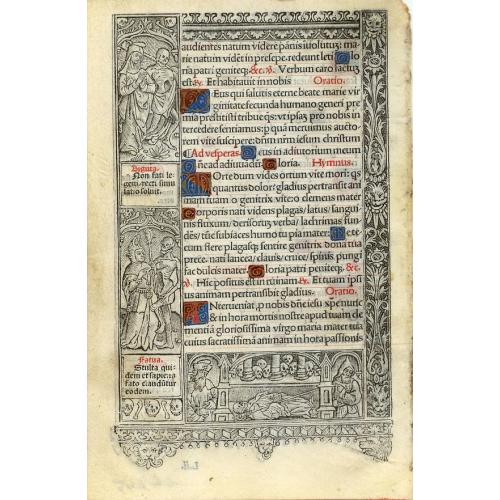 audientes natum videre pānis īuolutuȝ: ma
rie natum vidēt in presepe. redeunt leti Glo
loria patri geniteq; &c. ℣. Verbum caro factuȝ
est ℟. Et habitauit in nobis Oratio.
Eus qui salutis eterne beate marie vir
ginitate fecunda humano generi pre
mia prestitisti tribue q̄s: vt ipsaȝ pro nobis in
tercedere sentiamus: p quā meruimus aucto
rem vite suscipere: dn̄m nr̄m iesum christum
Ad vesperas. eus in adiutorium meum
ne ad adiuuādū: loria. Hymnus.
Orte dum vides ortum vite mori: qs
quantus dolor: gladius pertransit ani
mam tuam o genitrix vite: o clemens mater
orporis nati videns plagas / latus / sangui
nis fluxum / derisorū verba / lachrimas fun
dēs / tūc subiaces humo tu pia mater: ete
cum flere plagasq; sentire genitrix dona tua
prece. nati lancea / clauis / cruce / spinis pungi
fac dulcis mater. loria patri peniteq; &c.
℣. Hic positus est in ruinam ℟. Et tuam ipsi
us animam pertransibit gladius. Oratio.
Nterueniat, p nobis dn̄e iesu xp̄e nunc
& in hora mortis nostre apud tuam cle
mētiā gloriosissima virgo maria mater tua
cuius sacratissimā animam in hora passionis
Bigutta.
Non fati le
gem: recti simu
latio soluit.
Fatua.
Stulta qui
dem et sapiens
fato claudūtur
eodem.